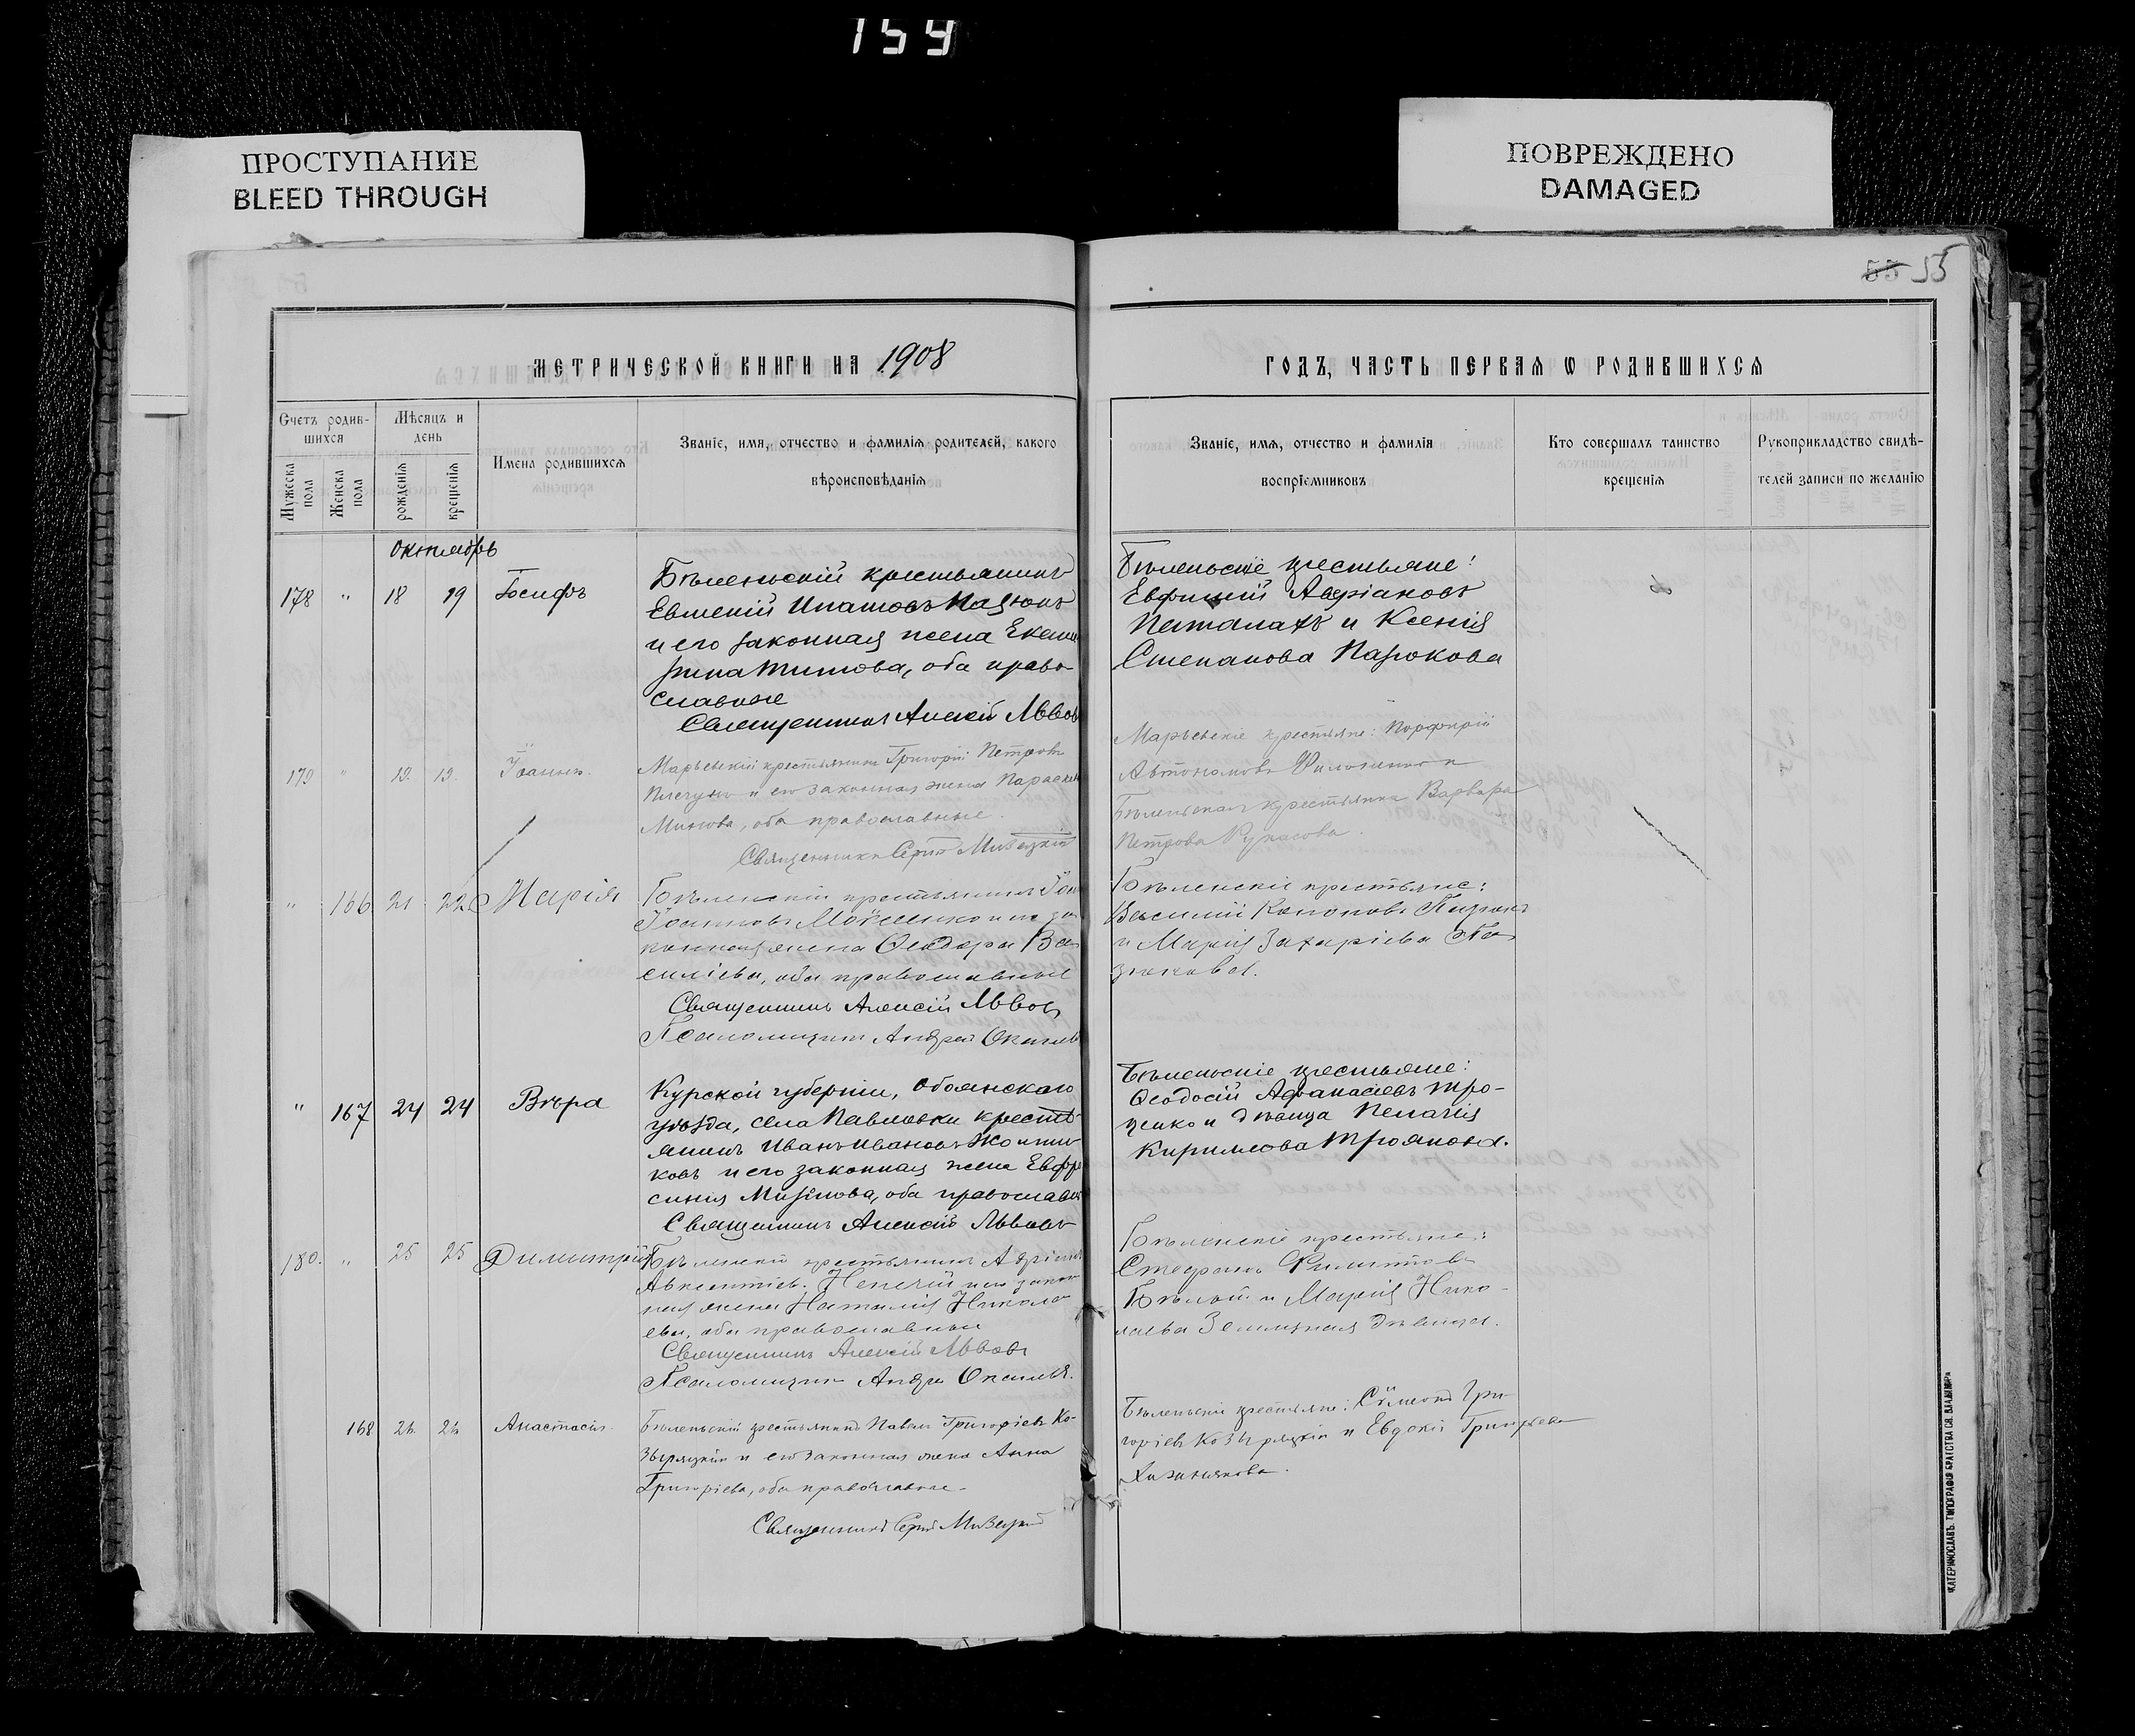 159
ПРОСТУПАНИЕ
BLEED THROUGH
ПОВРЕЖДЕНО
DAMAGED
55 55
МЕТРИЧЕСКОЙ КНИГИ НА 1908
ГОДЪ, ЧАСТЬ ПЕРВАЯ Ѡ РОДИВШИХСЯ
Счетъ родив-
шихся
Мужеска пола
Женска пола
Мѣсяцъ и
день
рожденія
крещенія
Имена родившихся
Званіе, имя, отчество и фамилія родителей, какого
вѣроисповѣданія
Званіе, имя, отчество и фамилія
воспріемниковъ
Кто совершалъ таинство
крещенія
Рукоприкладство свидѣ-
телей записи по желанію
октябрь
178 " 18 19 Іосифъ
Бѣленьскій крестьянинъ
Евменій Ипатовъ Пазюкъ
и его законная жена Екате
рина Титова, оба право-
славные
Священникъ Алексій Львовъ
Бѣленьскіе крестьяне:
Евфимій Авдіаковъ
Паталахъ и Ксенія
Степанова Пазюкова
179 " 19. 19. Іоаннъ.
Марьевскій крестьянинъ Григорій Петровъ
и его законная жена Параскева
Минова, оба православные.
Священникъ Сергій Мивецкій
Марьевскіе крестьяне: Порфирій
Автономовъ Филоненко и
Бѣленьская крестьянка Варвара
Петрова
" 166 21 22 Марія
Бѣленскій крестьянинъ
Іоанновъ и его за
конная жена Ѳеодора Ва
силіева, оба православные
Священникъ Алексій Львовъ
Псаломщикъ Андрей
Бѣленскіе крестьяне:
Василій Кононовъ Пазюкъ
и Марія Захаріева Па
зюкова.
" 167 24 24 Вѣра
Курской губерніи, Обоянскаго
уѣзда, села Павловки кресть-
янинъ Иванъ Ивановъ
ковъ и его законная жена Евфро
синія оба православные
Священникъ Алексій Львовъ
Бѣленьскіе крестьяне:
Ѳеодосій Афанасіевъ Тро-
ценко и дѣвица Пелагія
Кириллова Троянова.
180. " 25 25 Димитрій
Бѣленскій крестьянинъ Адріанъ
Авксентіевъ и его закон
ная жена Наталія Никола
ева, оба православные
Священникъ Алексій Львовъ
Псаломщикъ Андрей
Бѣленскіе крестьяне:
Стефанъ Филиповъ
Бѣлый и Марія Нико-
лаева дѣвица.
168 24. 24. Анастасія.
Бѣленьскій крестьянинъ Павелъ Григоріевъ Ко-
зырацкій и его законная жена Анна
Григоріева, оба православные.
Священникъ Сергій Мивецкій
Бѣленьскіе крестьяне: Сѵмеонъ Гри
горіевъ Козырацкій и Евдокія Григорьева